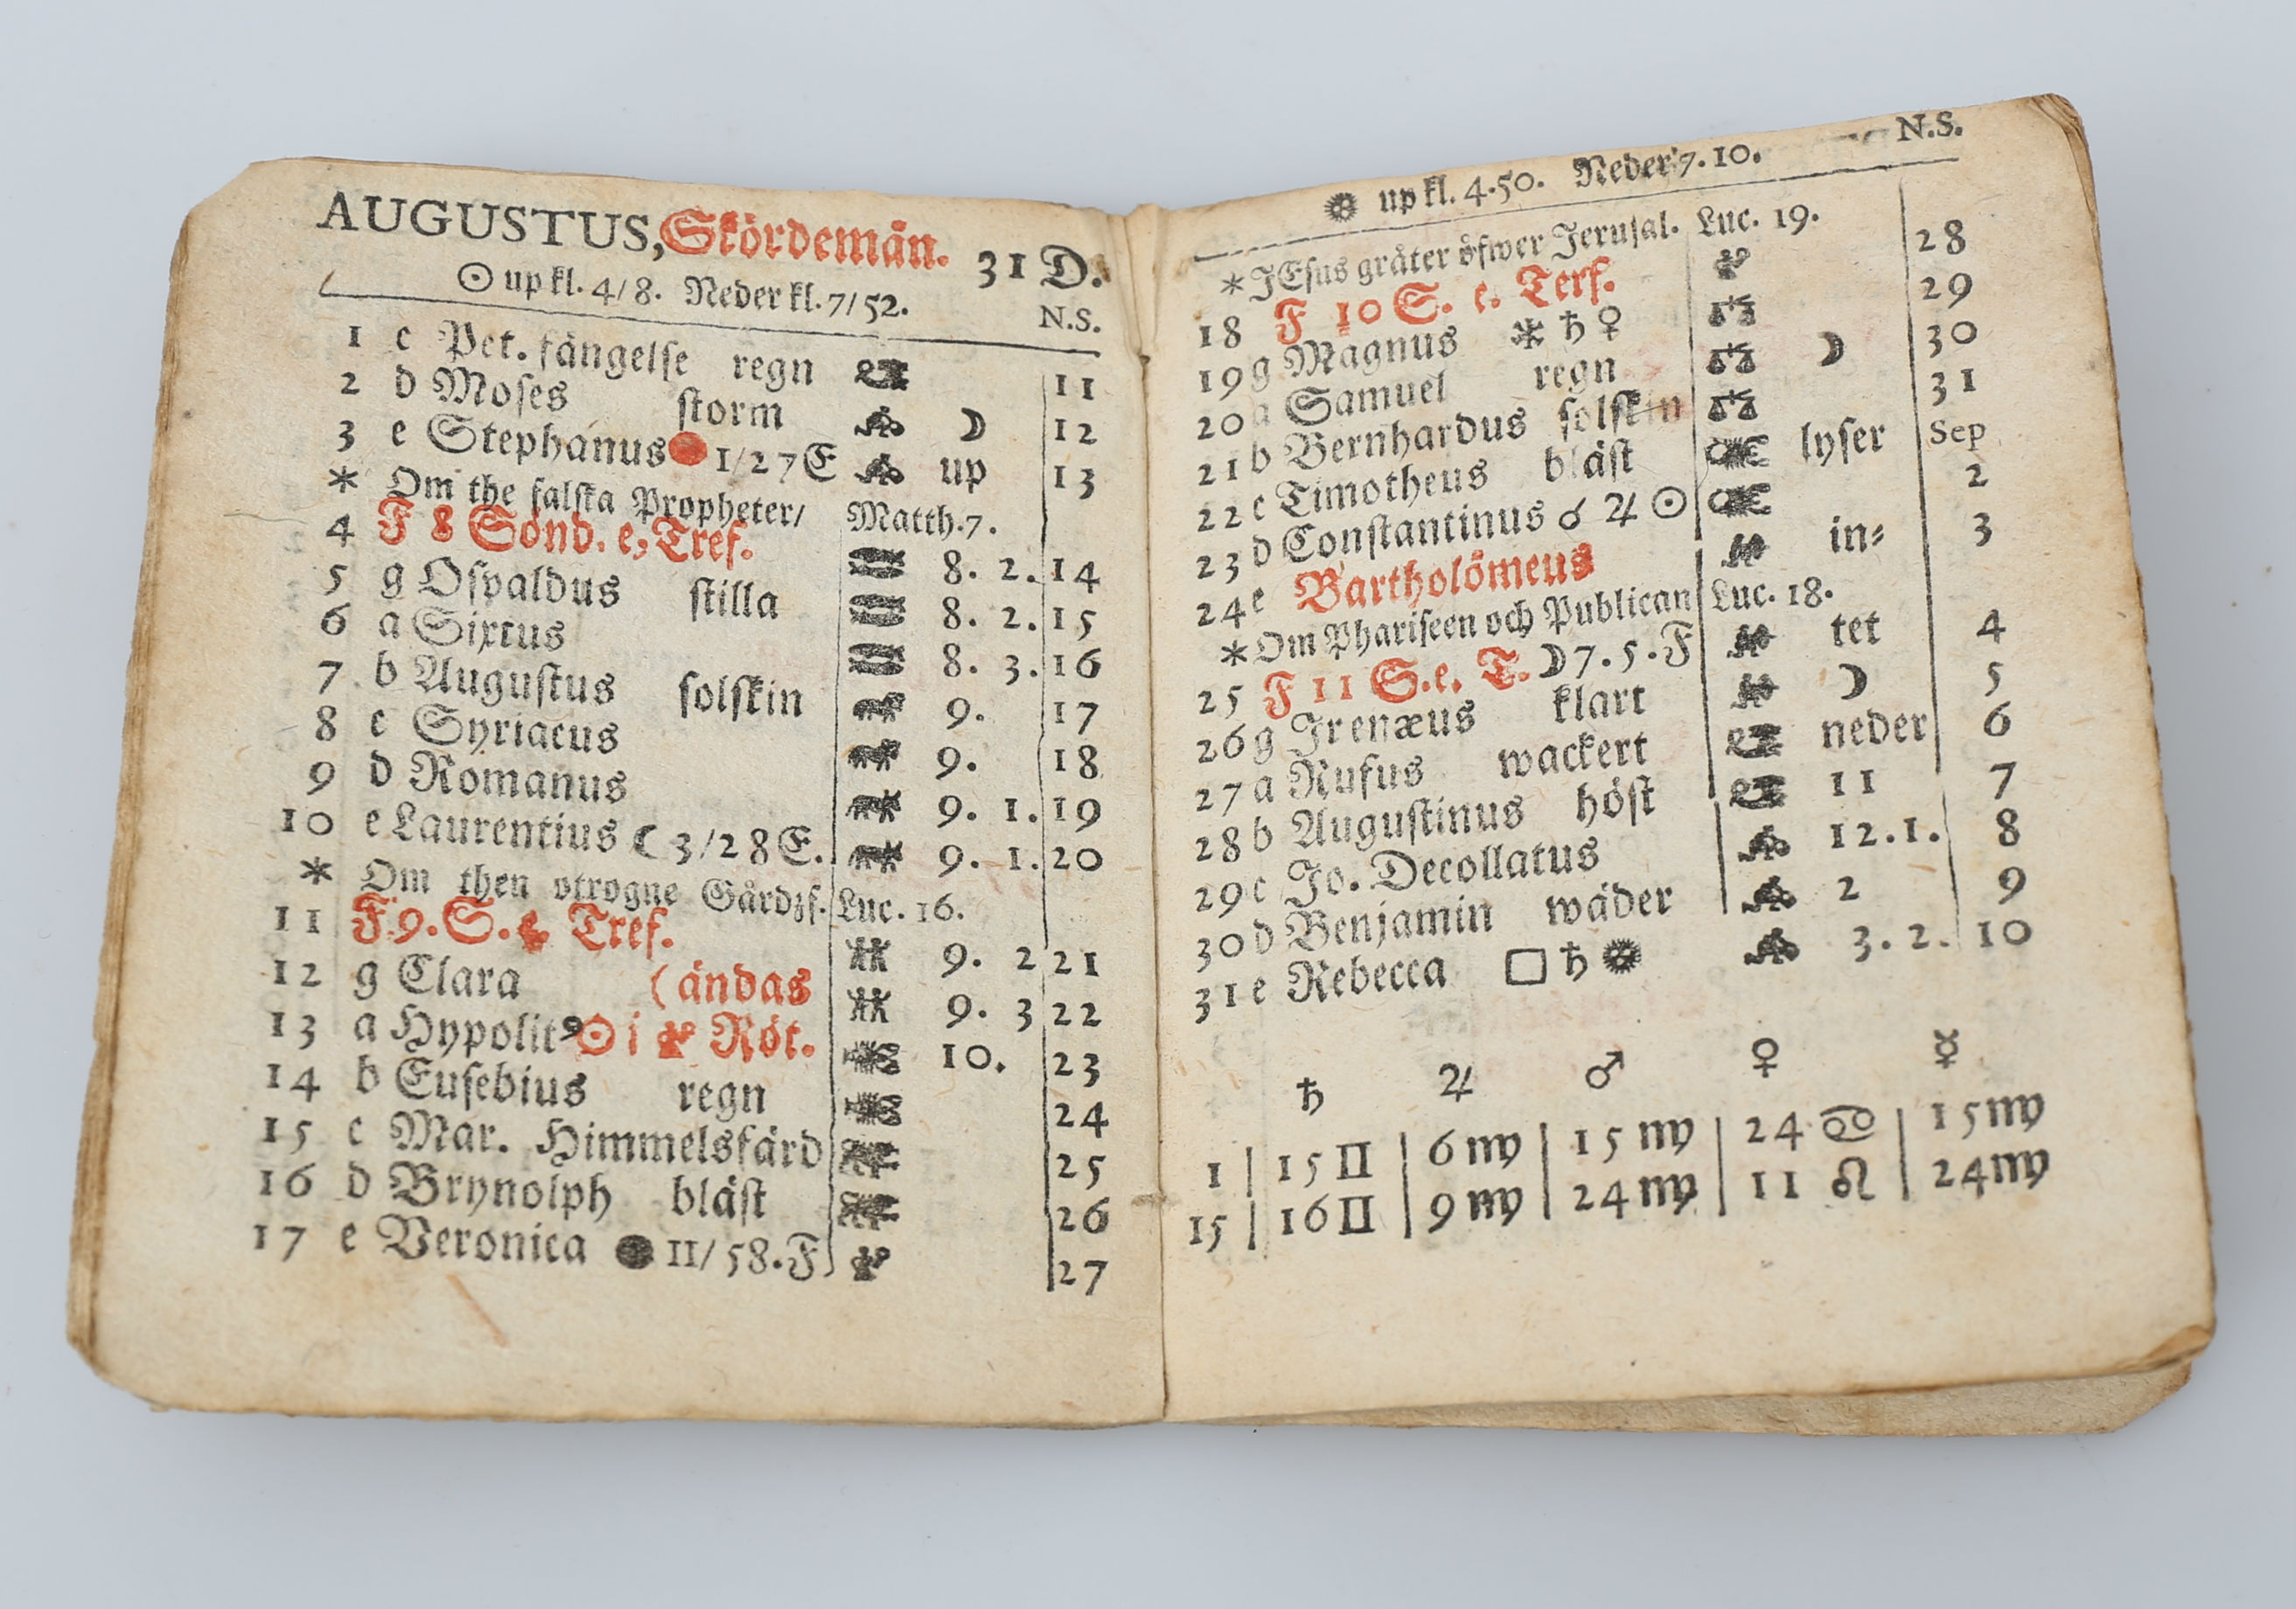 AUGUSTUS, Skördemän. 31 D.
☉ up kl. 4/8. Neder kl. 7/52.
N.S.
1 c Pet. fängelse regn 11
2 d Moses storm ☽ 12
3 e Stephanus 1/27 E up 13
* Om the falska Propheter/ Matth. 7.
4 F 8 Sönd. e, Tref. 8. 2. 14
5 g Osvaldus stilla 8. 2. 15
6 a Sixtus 8. 3. 16
7 b Augustus solskin 9. 17
8 c Syriacus 9. 18
9 d Romanus 9. 1. 19
10 e Laurentius ☾ 3/28 E. 9. 1. 20
* Om then otrogne Gårdzf. Luc. 16.
11 F 9. S. e. Tref. 9. 2 21
12 g Clara (ändas 9. 3 22
13 a Hypolitꝰ ☉ i ♍ Röt. 10. 23
14 b Eusebius regn 24
15 c Mar. Himmelsfärd 25
16 d Brynolph bläst 26
17 e Veronica ● 11/58. F 27
☉ up kl. 4.50. Neder 7. 10. N.S.
* JEsus gråter öfwer Jerusal. Luc. 19.
18 F 10 S. e. Terf. 28
19 g Magnus ⚹ ♄ ♀ 29
20 a Samuel regn ☽ 30
21 b Bernhardus solskin 31
22 c Timotheus bläst lyser Sep
23 d Constantinus ☌ ♃ ☉ 2
24 e Bartholömeus in⸗ 3
* Om Phariseen och Publican Luc. 18.
25 F 11 S. e. T. ☽ 7. 5. F tet 4
26 g Irenæus klart ☽ 5
27 a Rufus wackert neder 6
28 b Augustinus höst 11 7
29 c Jo. Decollatus 12. 1. 8
30 d Benjamin wäder 2 9
31 e Rebecca □ ♄ ☉ 3. 2. 10
♄ ♃ ♂ ♀ ☿
1 | 15 ♊ | 6 ♍ | 15 ♍ | 24 ♋ | 15 ♍
15 | 16 ♊ | 9 ♍ | 24 ♍ | 11 ♌ | 24 ♍